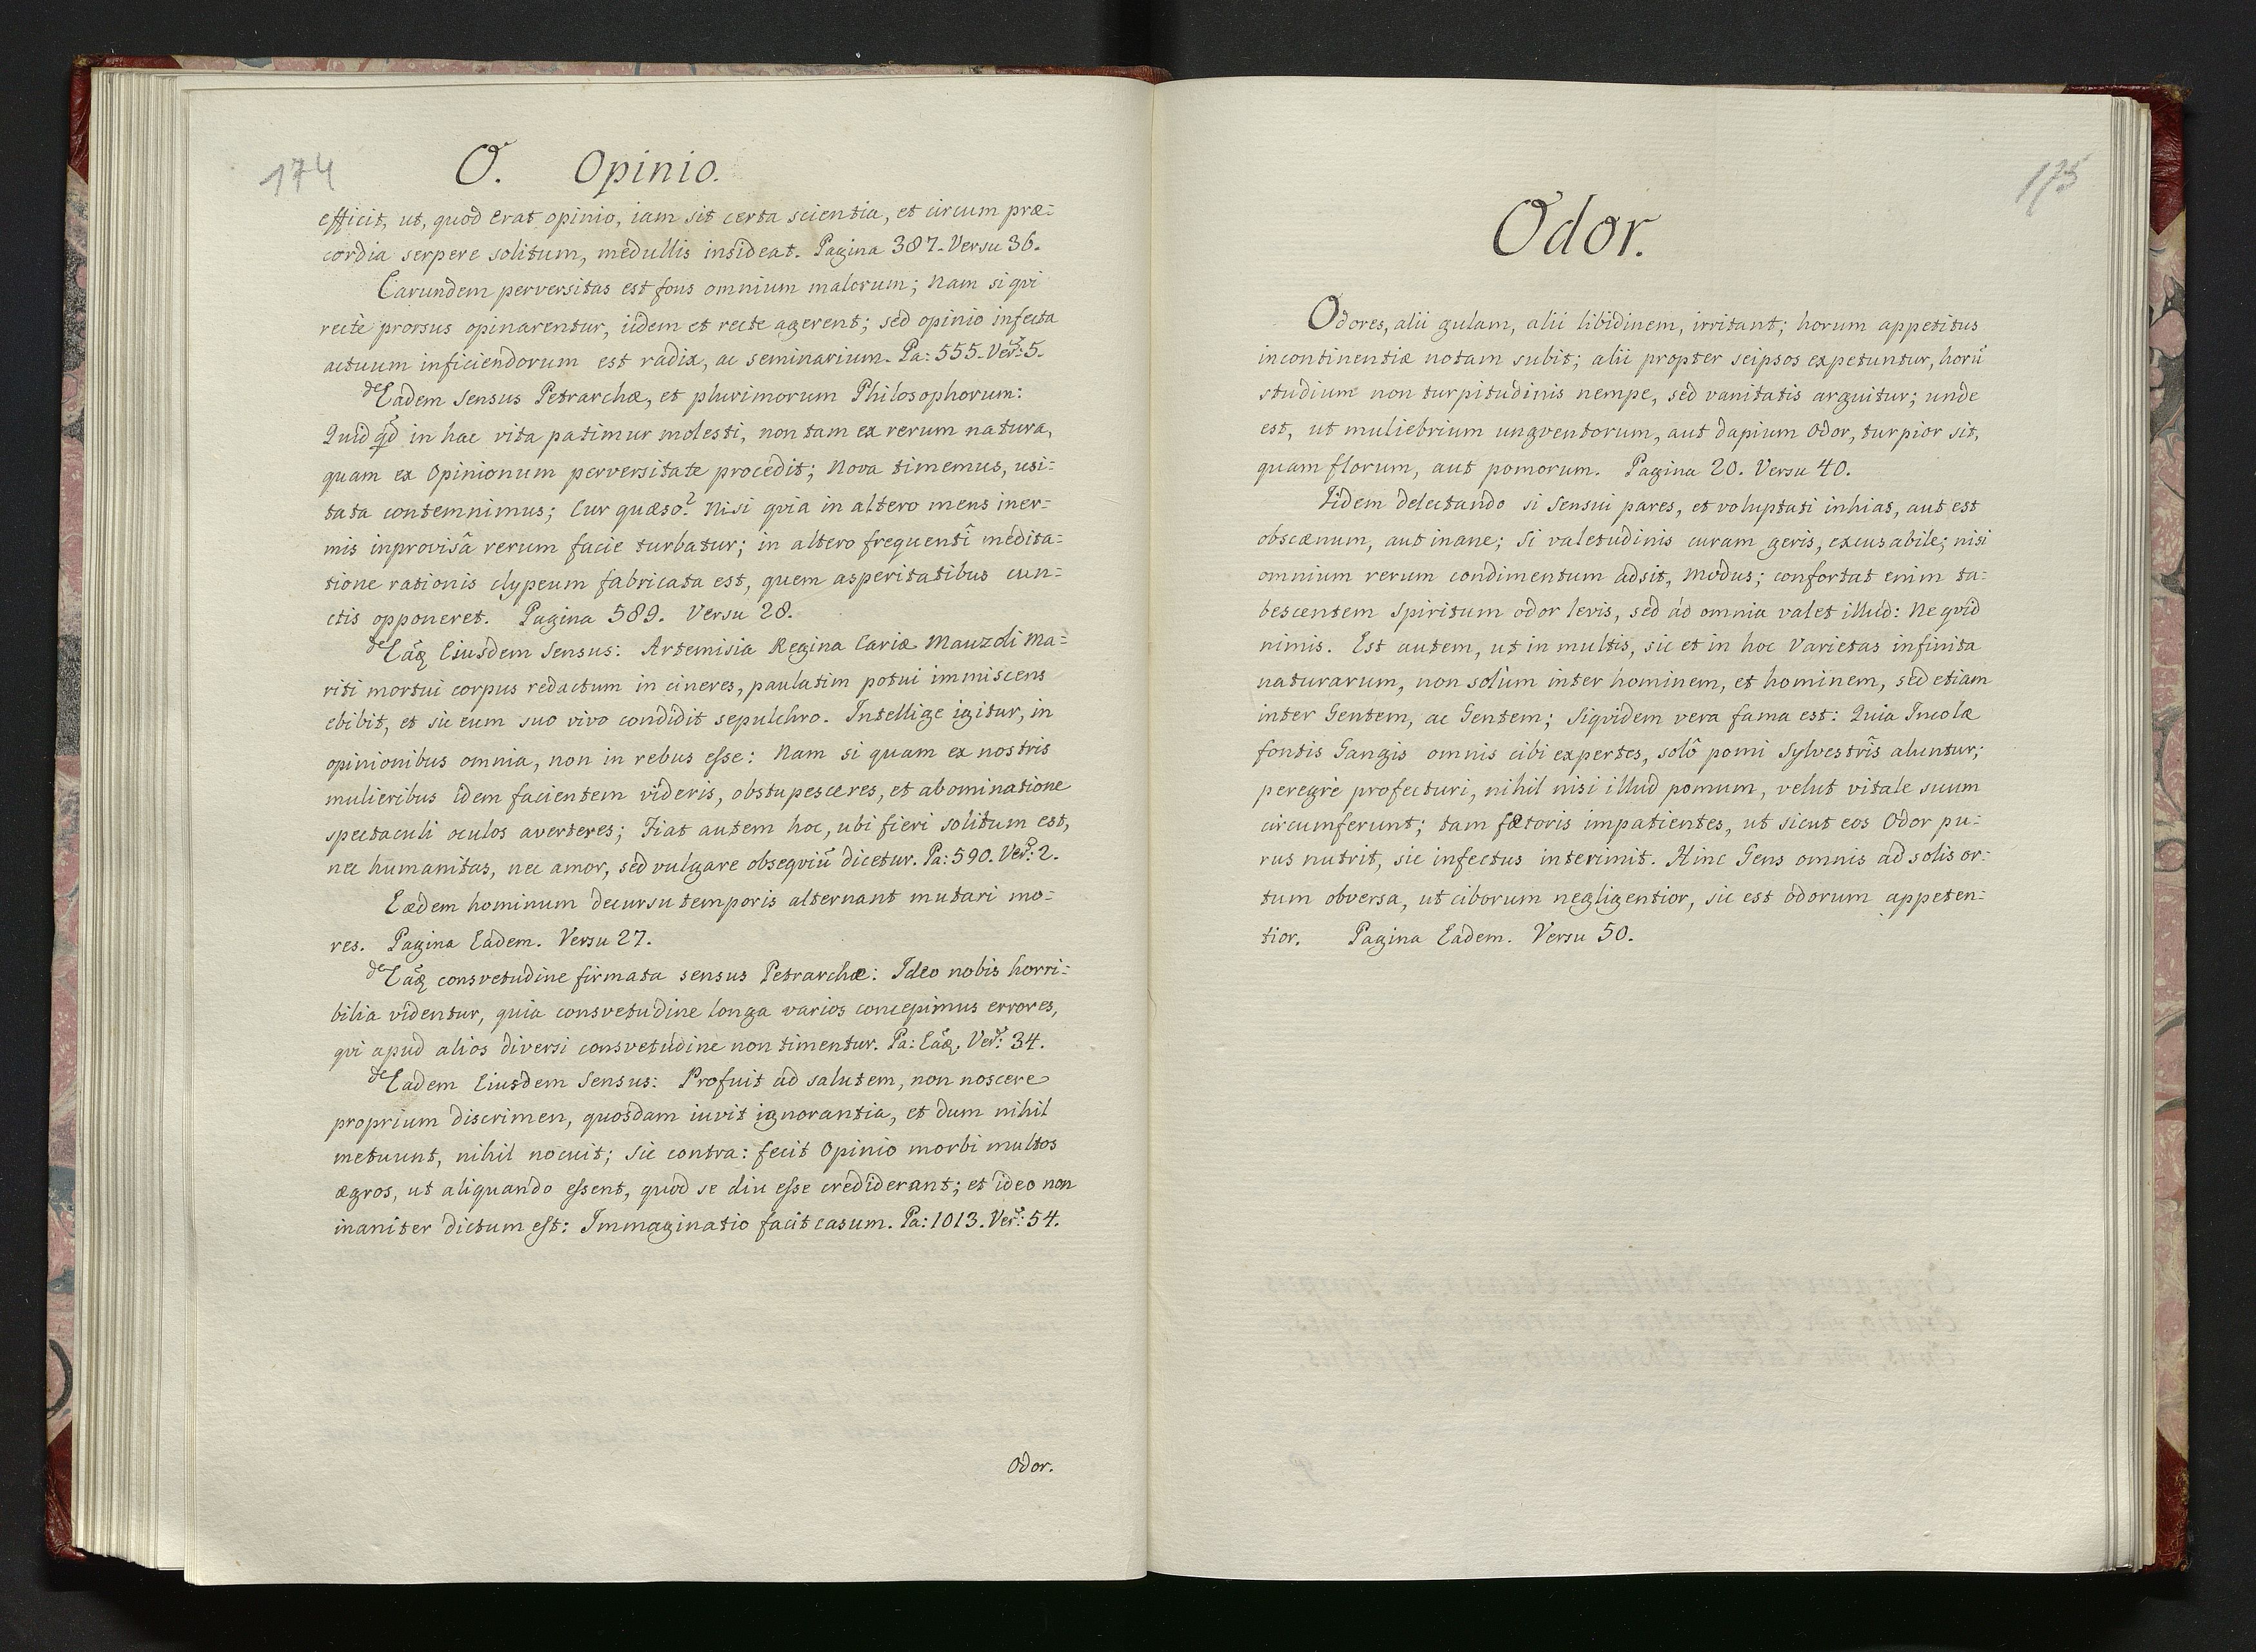 174
O. Opinio.
efficit, ut, quod erat opinio, iam sit certa scientia, et circum præ=
cordia serpere solitum, medullis insideat. Pagina 387. Versu 36.
Earundem perversitas est fons omnium malorum; Nam si qvi
recte prorsus opinarentur, iidem et recte agerent; sed opinio infecta
actuum inficiendorum est radix, ac seminarium. Pa: 555. Verˢ: 5.
de Eadem Sensus Petrarchæ, et plurimorum Philosophorum:
Quid qd̃ in hac vita patimur molesti, non tam ex rerum natura,
quam ex Opinionum perversitate procedit; Nova timemus, usi=
tata contemnimus; Cur quæso? Nisi qvia in altero mens iner=
mis inprovisâ rerum facie turbatur; in altero frequentî medita=
tione rationis clypeum fabricata est, quem asperitatibus cun=
ctis opponeret. Pagina 589. Versu 28.
de Eaq̃ Eiusdem Sensus: Artemisia Regina Cariæ Mauzoli Ma=
riti mortui corpus redactum in cineres, paulatim potui immiscens
ebibit, et sic eum suo vivo condidit sepulchro. Intellige igitur, in
opinionibus omnia, non in rebus esse: Nam si quam ex nostris
mulieribus idem facientem videris, obstupesceres, et abominatione
spectaculi oculos averteres; Fiat autem hoc, ubi fieri solitum est,
nec humanitas, nec amor, sed vulgare obseqviũ dicetur. Pa: 590. Verˢ: 2.
Eædem hominum decursu temporis alternant mutari mo=
res. Pagina Eadem. Versu 27.
de Eaq̃ consvetudine firmata sensus Petrarchæ: Ideo nobis horri=
bilia videntur, quia consvetudine longa varios concepimus errores,
qvi apud alios diversi consvetudine non timentur. Pa: Eaq̃. Verˢ: 34.
de Eadem Eiusdem Sensus: Profuit ad salutem, non noscere
proprium discrimen, quosdam iuvit ignorantia, et dum nihil
metuunt, nihil nocuit; Sic contra: fecit Opinio morbi multos
ægros, ut aliquando essent, quod se diu esse crediderant; et ideo non
inaniter dictum est: Immaginatio facit casum. Pa: 1013. Verˢ: 54.
Odor.
175
Odor.
Odores, alii gulam, alii libidinem, irritant; horum appetitus
incontinentiæ notam subit; alii propter seipsos expetuntur, horũ
studium non turpitudinis nempe, sed vanitatis arguitur; unde
est, ut muliebrium ungventorum, aut dapium Odor, turpior sit,
quam florum, aut pomorum. Pagina 20. Versu 40.
Iidem delectando si Sensui pares, et voluptati inhias, aut est
obscænum, aut inane; Si valetudinis curam geris, excusabile; nisi
omnium rerum condimentum adsit, Modus; confortat enim ta=
bescentem Spiritum odor levis, sed ad omnia valet illud: Ne qvid
nimis. Est autem, ut in multis, sic et in hoc Varietas infinita
naturarum, non solùm inter hominem, et hominem, sed etiam
inter Gentem, ac Gentem; Siqvidem vera fama est: Quia Incolæ
fontis Gangis omnis cibi expertes, solô pomi Sylvestris aluntur;
peregrè profecturi, nihil nisi illud pomum, velut vitale suum
circumferunt; tam fætoris impatientes, ut sicut eos Odor pu=
rus nutrit, sic infectus interimit. Hinc Gens omnis ad solis or=
tum obversa, ut ciborum negligentior, sic est odorum appeten=
tior. Pagina Eadem. Versu 50.